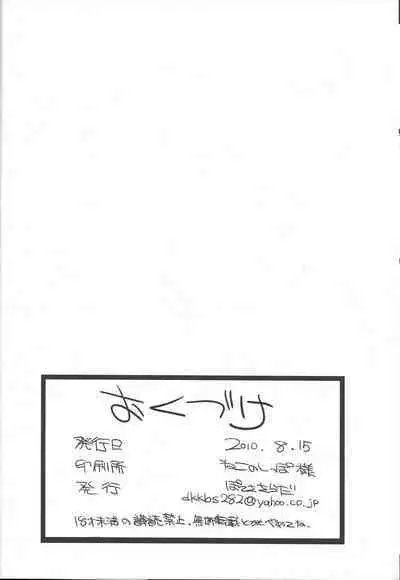 おくづけ
発行日 2010.8.15
印刷所 ねこのしっぽ様
発行 ぽてとさらだ
dkkbs282@yahoo.co.jp
18才未満の購読禁止。無断転載とかやめてね。